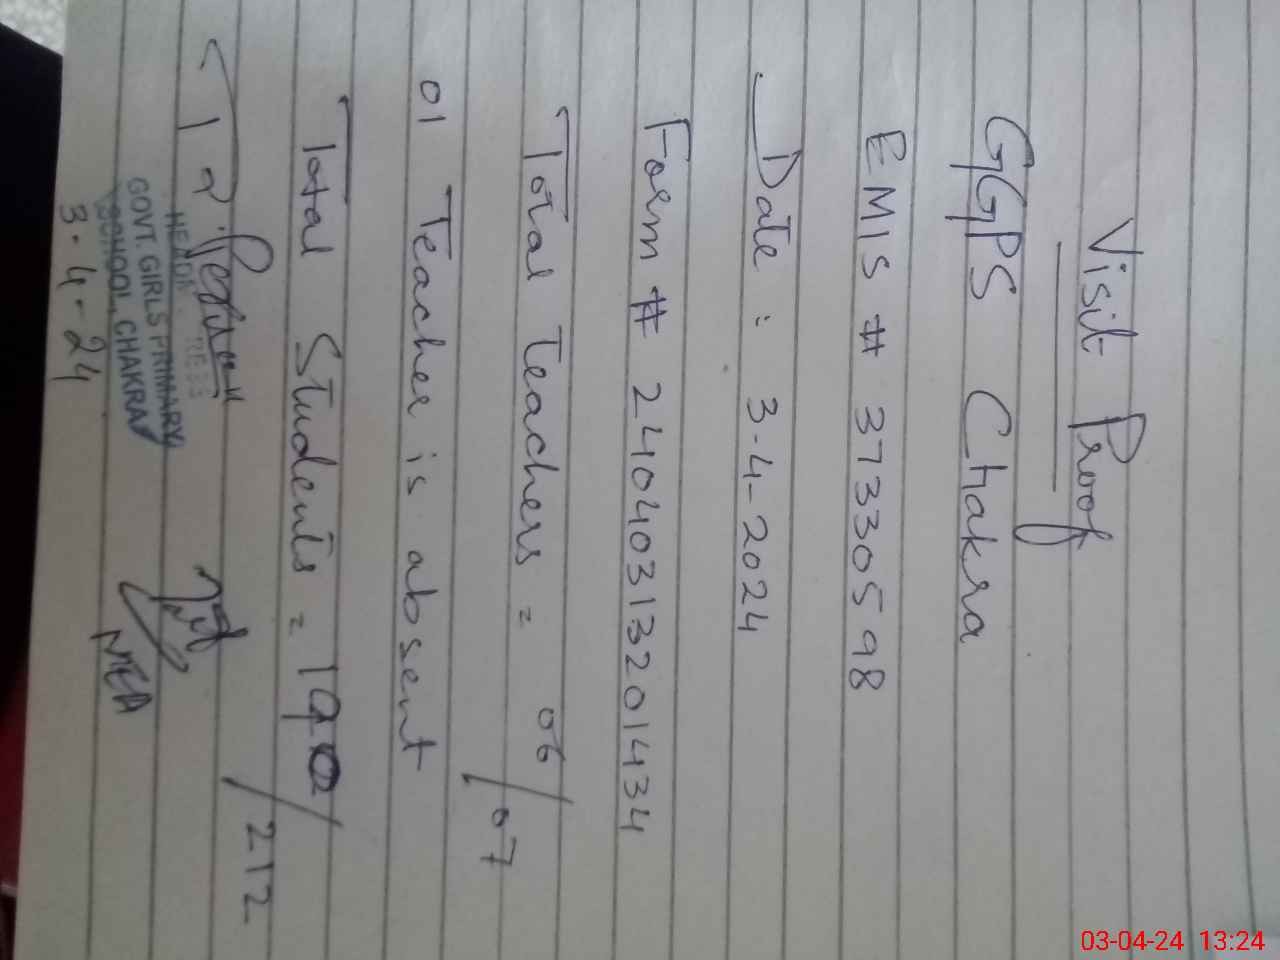 Visit Proof
GGPS Chakra
EMIS # 37330598
Date : 3-4-2024
Form # 24040313201434
Total Teachers = 06/07
01 Teacher is absent
Total Students = 190/212
GOVT. GIRLS PRIMARY
SCHOOL, CHAKRA
3-4-24
MEA
03-04-24 13:24